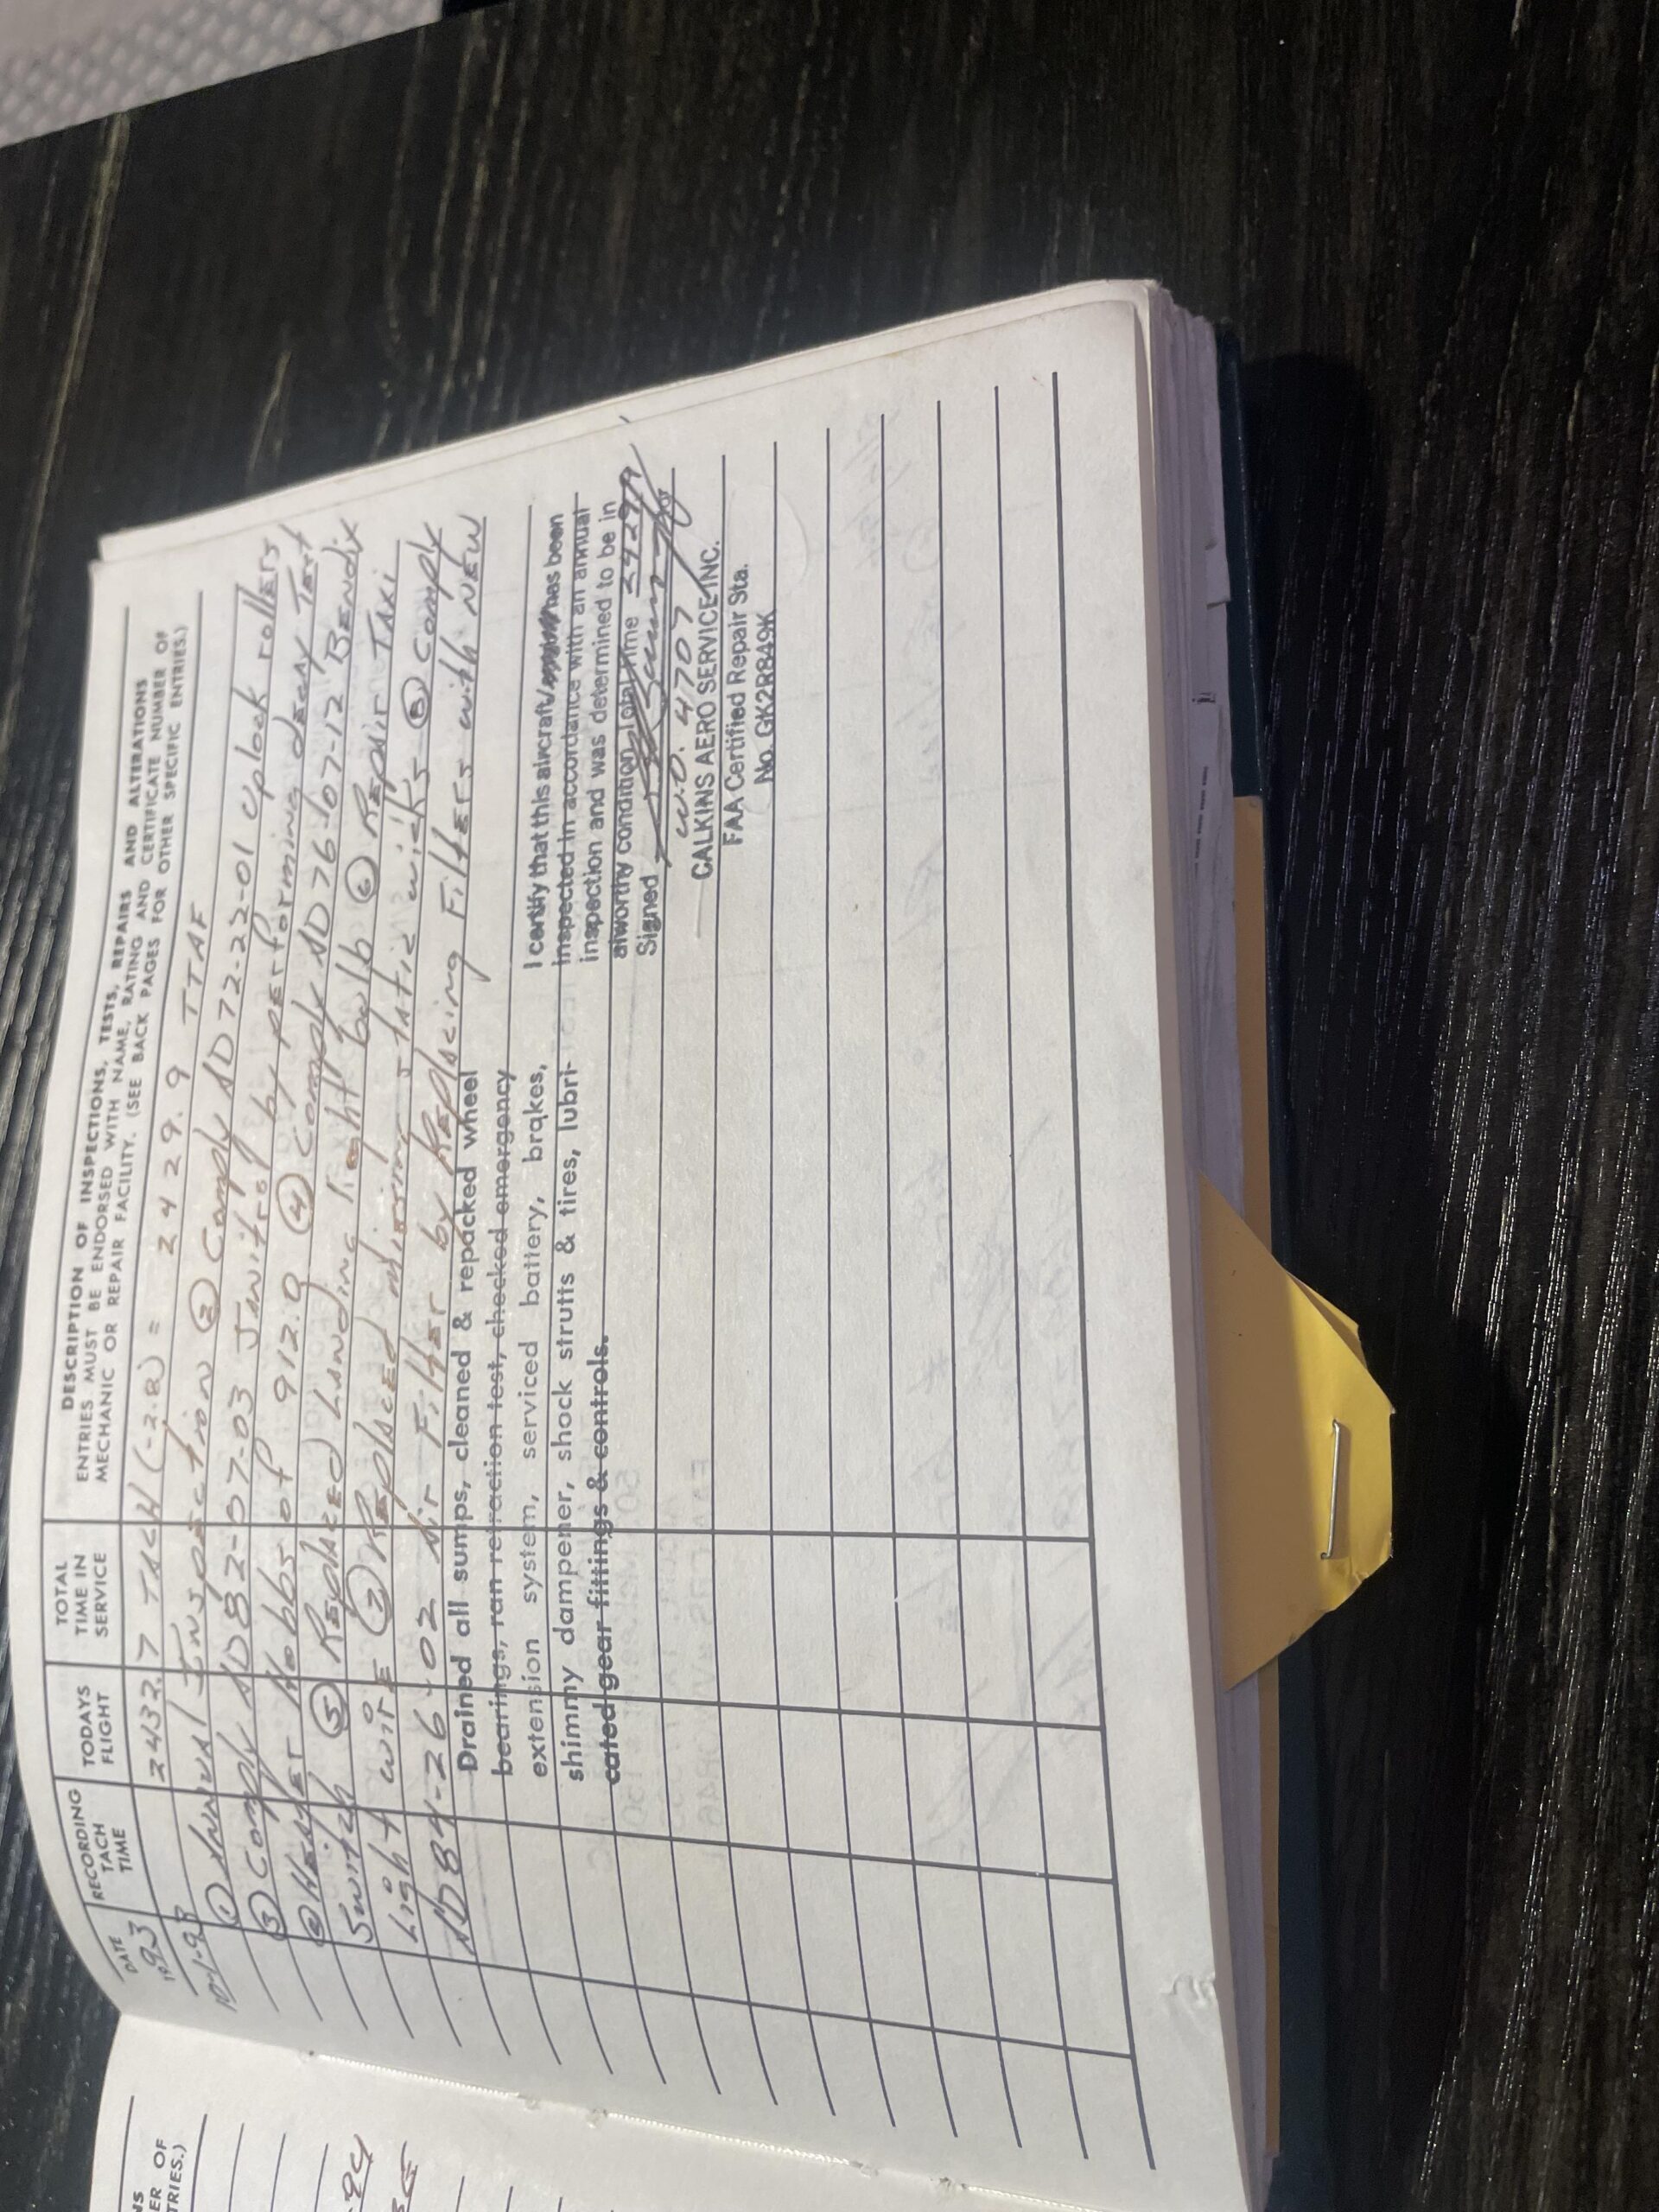 DATE
1993
RECORDING
TACH
TIME
TODAYS
FLIGHT
TOTAL
TIME IN
SERVICE
DESCRIPTION OF INSPECTIONS, TESTS, REPAIRS AND ALTERATIONS
ENTRIES MUST BE ENDORSED WITH NAME, RATING AND CERTIFICATE NUMBER OF
MECHANIC OR REPAIR FACILITY. (SEE BACK PAGES FOR OTHER SPECIFIC ENTRIES.)
10-1-93 2432.7 TACH (-2.8) = 2429.9 TTAF
① Annual Inspection ② Comply AD72-22-01 Uplock rollers
③ Comply AD82-07-03 Janitrol by performing decay Test
@ Heater Hobbs of 912.0 ④ Comply AD76-07-12 Bendix
Switch ⑤ Replaced Landing light bulb ⑥ Repair TAXI
Light wire ⑦ Replaced missing static wicks ⑧ Comply
AD84-26-02 Air Filter by Replacing Filters with NEW
Drained all sumps, cleaned & repacked wheel
bearings, ran retraction test, checked emergency
extension system, serviced battery, brakes,
shimmy dampener, shock strutts & tires, lubri-
cated gear fittings & controls.
I certify that this aircraft/ has been
inspected in accordance with an annual
inspection and was determined to be in
airworthy condition total time 2429.9
Signed
W.O. 4707
CALKINS AERO SERVICE INC.
FAA Certified Repair Sta.
No. GK2R849K
NS
ER OF
TRIES.)
-94